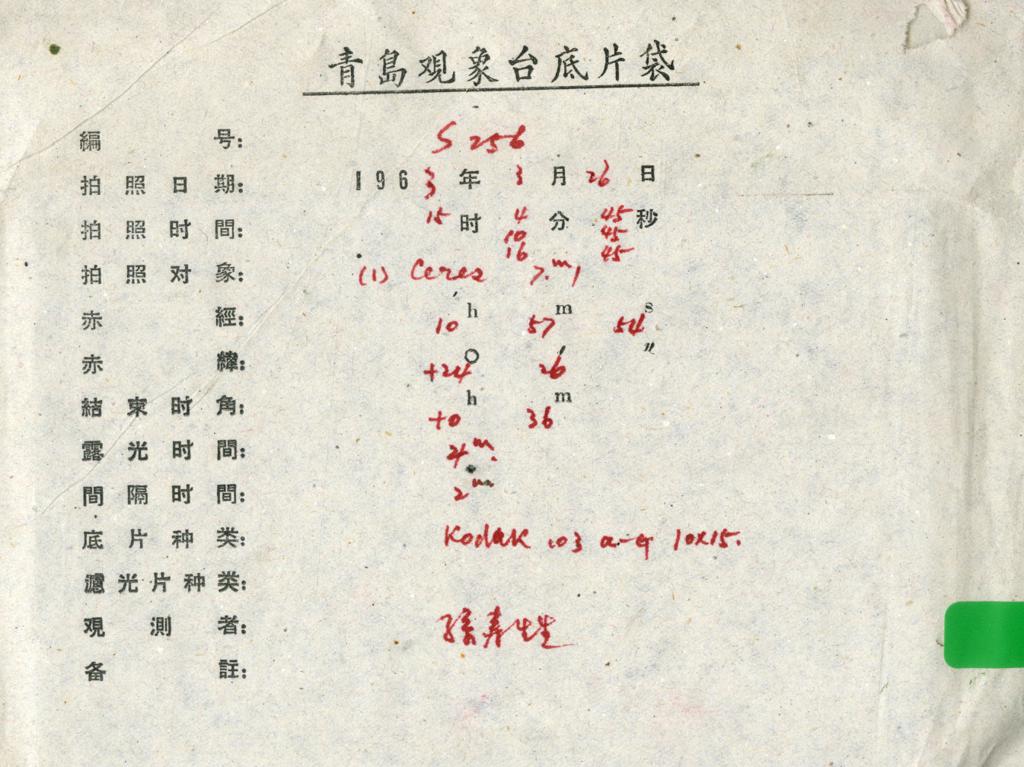 青島观象台底片袋
編号： S 256
拍照日期： 1963年 3月 26日
拍照时間： 15时 4分 45秒
10 45
16 45
拍照对象： (1) Ceres 7.ᵐ1
赤經： 10ʰ 57ᵐ 54ˢ
赤緯： +24° 26′ ″
結束时角： +0ʰ 36ᵐ
露光时間： 4ᵐ.
間隔时間： 2ᵐ
底片种类： Kodak 103 a-G 10x15.
濾光片种类：
观測者： 孫寿
备註：